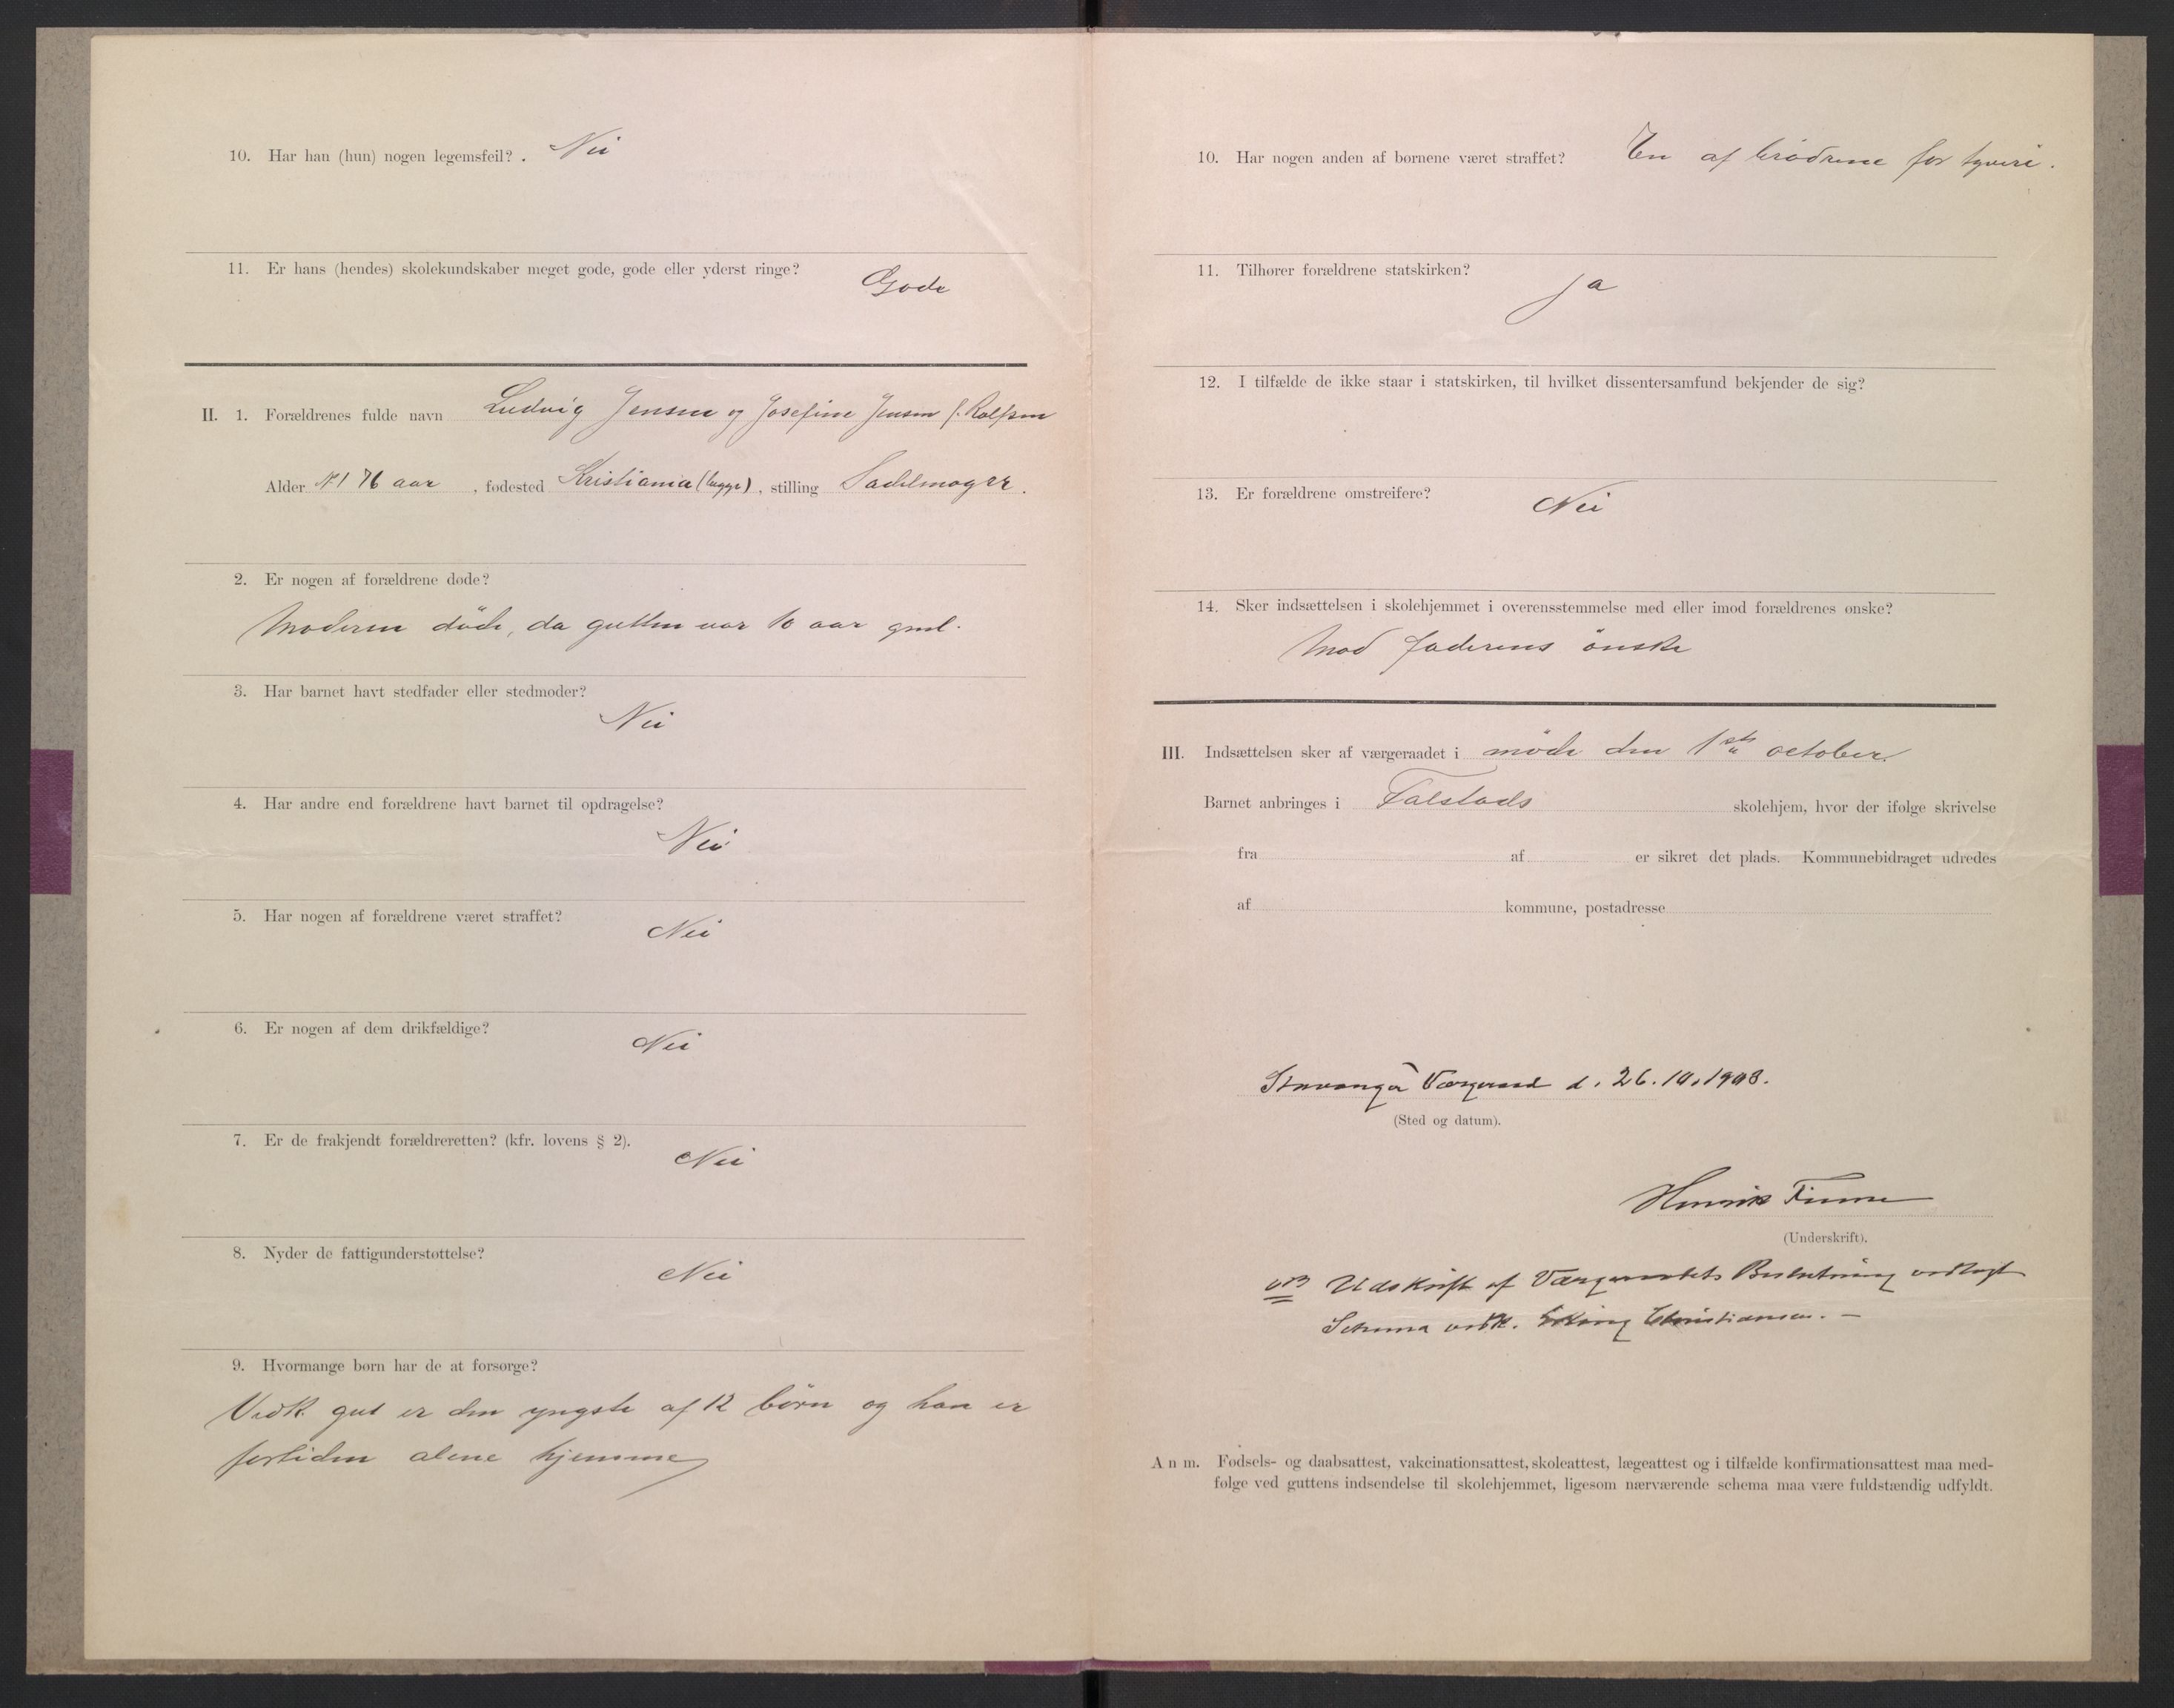 10. Har han (hun) nogen legemsfeil? . Nei
11. Er hans (hendes) skolekundskaber meget gode, gode eller yderst ringe? Gode
II. 1. Forældrenes fulde navn Ludvig Jensen og Josefine Jensen f. Rolfsen
Alder N 1 76 aar, fødested Kristiania (begge), stilling Sadelmager.
2. Er nogen af forældrene døde?
Moderen döde, da gutten var 10 aar gml.
3. Har barnet havt stedfader eller stedmoder?
Nei
4. Har andre end forældrene havt barnet til opdragelse?
Nei
5. Har nogen af forældrene været straffet?
Nei
6. Er nogen af dem drikfældige?
Nei
7. Er de frakjendt forældreretten? (kfr. lovens § 2).
Nei
8. Nyder de fattigunderstøttelse?
Nei
9. Hvormange børn har de at forsørge?
Vedk. gut er den yngste af 12 börn og han er
fortiden alene hjemme
10. Har nogen anden af børnene været straffet? En af brödrene for tyveri.
11. Tilhører forældrene statskirken?
Ja
12. I tilfælde de ikke staar i statskirken, til hvilket dissentersamfund bekjender de sig?
13. Er forældrene omstreifere?
Nei
14. Sker indsættelsen i skolehjemmet i overensstemmelse med eller imod forældrenes ønske?
Mod faderens önske
III. Indsættelsen sker af værgeraadet i möde den 1ste october.
Barnet anbringes i Falstads skolehjem, hvor der ifølge skrivelse
fra af er sikret det plads. Kommunebidraget udredes
af kommune, postadresse
Stavanger Værgeraad d. 26.10.1908.
(Sted og datum).
Henrik Finne
(Underskrift).
NB Udskrift af Værgeraadets Beslutning vedlagt
Schema vedk. Erling Christiansen. —
Anm. Fødsels- og daabsattest, vakcinationsattest, skoleattest, lægeattest og i tilfælde konfirmationsattest maa med-
følge ved guttens indsendelse til skolehjemmet, ligesom nærværende schema maa være fuldstændig udfyldt.